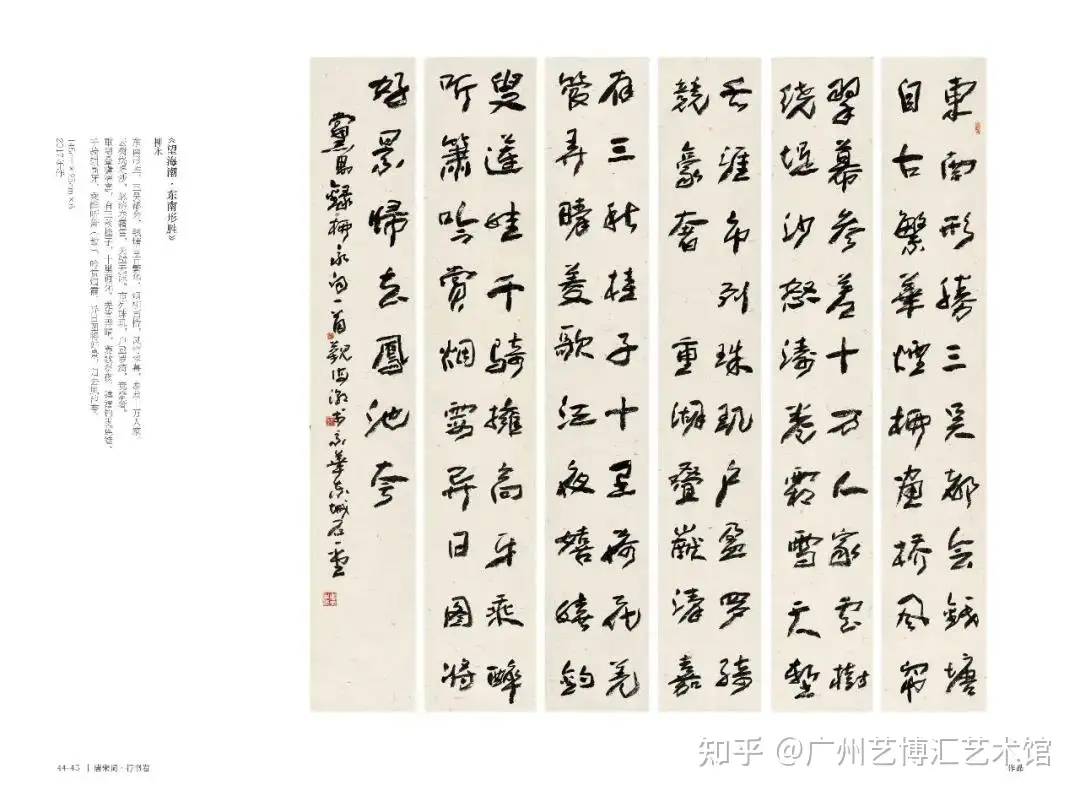 東南形勝三吴都会錢塘
自古繁華煙柳畫橋風帘
翠幕参差十万人家雲樹
繞堤沙怒濤卷霜雪天塹
无涯市列珠玑户盈罗绮
競豪奢 重湖叠巘清嘉
有三秋桂子十里荷花羌
管弄晴菱歌泛夜嬉嬉釣
叟蓮娃千騎擁高牙乘醉
听簫吟賞烟霞異日图将
好景歸去鳳池夸
録柳永词一首
《望海潮·东南形胜》
柳永
东南形胜，三吴都会，钱塘自古繁华，烟柳画桥，风帘翠幕，参差十万人家。
云树绕堤沙，怒涛卷霜雪，天堑无涯。市列珠玑，户盈罗绮，竞豪奢。
重湖叠巘清嘉，有三秋桂子，十里荷花。羌管弄晴，菱歌泛夜，嬉嬉钓叟莲娃。
千骑拥高牙，乘醉听箫（鼓），吟赏烟霞，异日图将好景，归去凤池夸。
145cm×25cm×6
2017年作
44-45 | 唐宋词·行书卷
作品
知乎 @广州艺博汇艺术馆